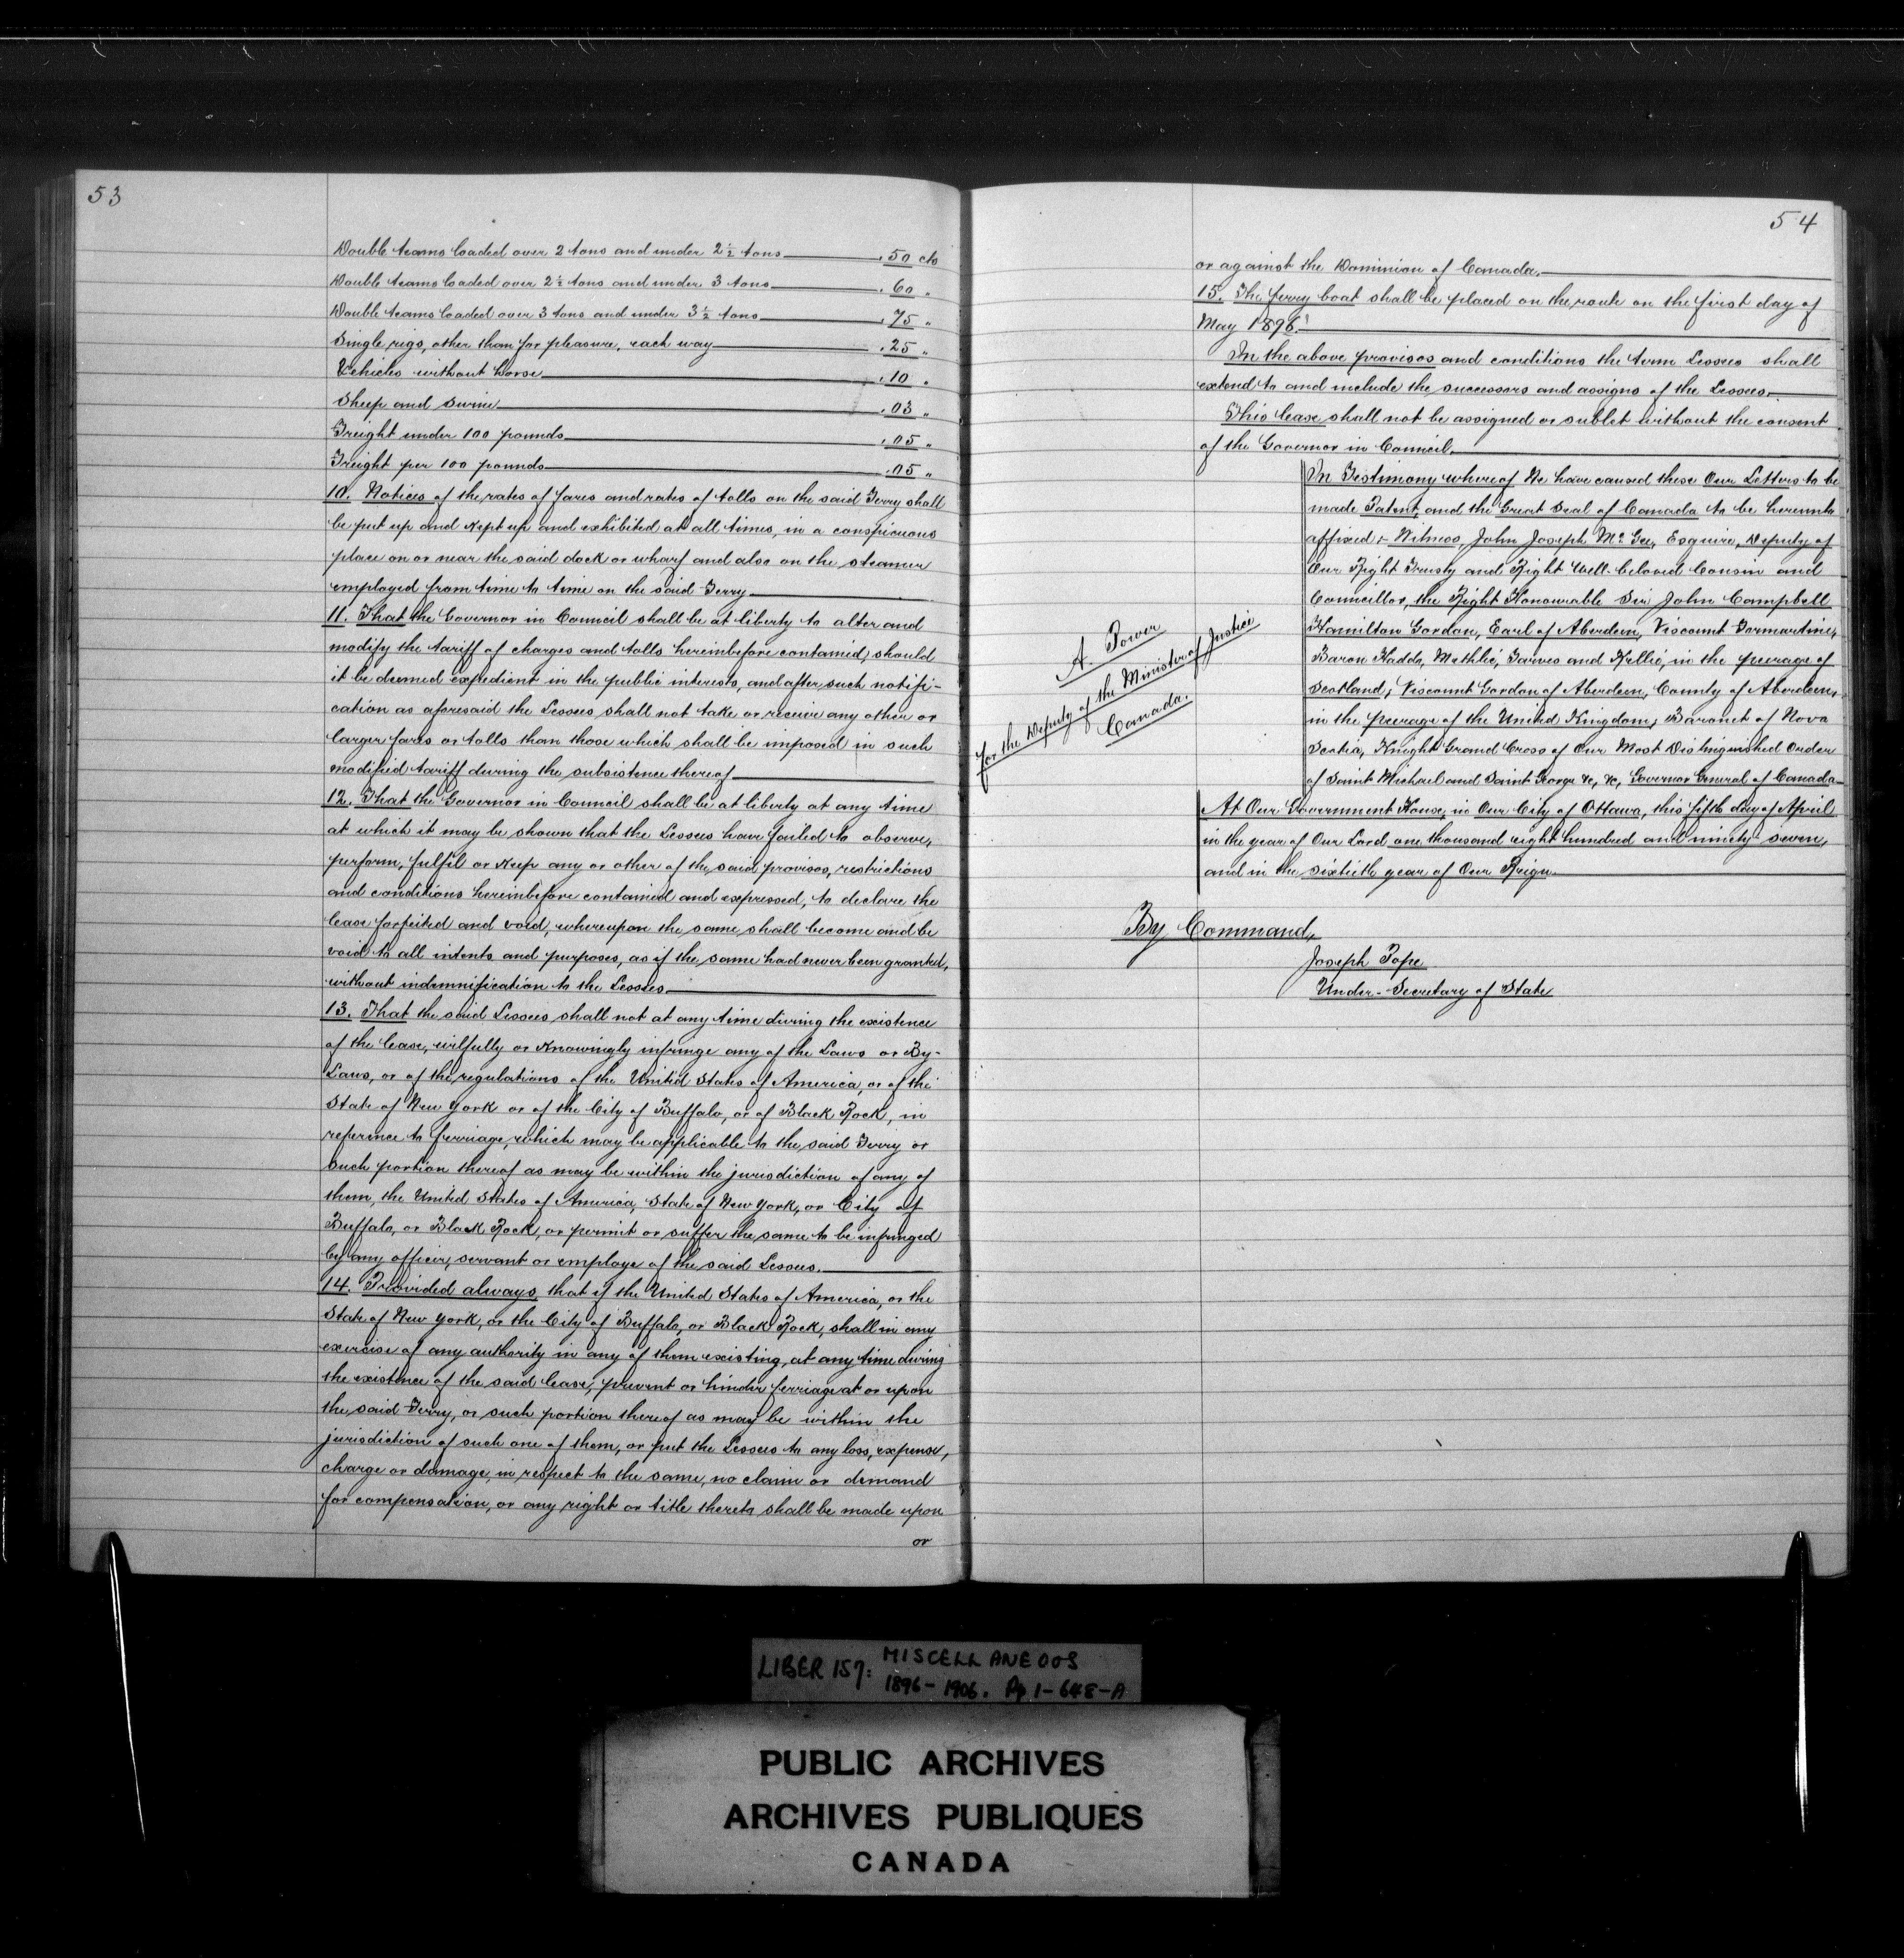 53
Double teams loaded over 2 tons and under 2½ tons .50 cts
Double teams loaded over 2½ tons and under 3 tons .60 "
Double teams loaded over 3 tons and under 3½ tons .75 "
Single rigs, other than for pleasure, each way .25 "
Vehicles without horse .10 "
Sheep and Swine .03 "
Freight under 100 pounds .05 "
Freight per 100 pounds .05 "
10. Notices of the rates of fares and rates of tolls on the said Ferry shall
be put up and kept up and exhibited at all times, in a conspicuous
place on or near the said dock or wharf and also on the steamer
employed from time to time on the said Ferry
11. That the Governor in Council shall be at liberty to alter and
modify the tariff of charges and tolls hereinbefore contained, should
it be deemed expedient in the public interests, and after such notifi-
cation as aforesaid the Lessees shall not take or receive any other or
larger fares or tolls than those which shall be imposed in such
modified tariff during the subsistence thereof
12. That the Governor in Council shall be at liberty at any time
at which it may be shown that the Lessees have failed to observe,
perform, fulfil or keep any or other of the said provisos, restrictions
and conditions hereinbefore contained and expressed, to declare the
lease forfeited and void, whereupon the same shall become and be
void to all intents and purposes, as if the same had never been granted,
without indemnification to the Lessees
13. That the said Lessees shall not at any time during the existence
of the lease, wilfully or knowingly infringe any of the Laws or By-
Laws, or of the regulations of the United States of America, or of the
State of New York or of the City of Buffalo, or of Black Rock, in
reference to ferriage, which may be applicable to the said Ferry or
such portion thereof as may be within the jurisdiction of any of
them, the United States of America, State of New York, or City of
Buffalo, or Black Rock, or permit or suffer the same to be infringed
by any officer, servant or employe of the said Lessees.
14. Provided always that if the United States of America, or the
State of New York, or the City of Buffalo, or Black Rock, shall in any
exercise of any authority in any of them existing, at any time during
the existence of the said lease, prevent or hinder ferriage at or upon
the said Ferry, or such portion thereof as may be within the
jurisdiction of such one of them, or put the Lessees to any loss, expense,
charge or damage, in respect to the same, no claim or demand
for compensation, or any right or title thereto shall be made upon
or
54
or against the Dominion of Canada.
15. The ferry boat shall be placed on the route on the first day of
May 1898.
In the above provisos and conditions the term Lessees shall
extend to and include the successors and assigns of the Lessees.
This lease shall not be assigned or sublet without the consent
of the Governor in Council.
In Testimony whereof We have caused these Our Letters to be
made Patent, and the Great Seal of Canada to be hereunto
affixed:- Witness, John Joseph McGee, Esquire, Deputy of
Our Right Trusty and Right Well-beloved Cousin and
Councillor, the Right Honourable Sir John Campbell
Hamilton Gordon, Earl of Aberdeen, Viscount Formartine,
Baron Haddo, Methlic, Tarves and Kellie, in the peerage of
Scotland; Viscount Gordon of Aberdeen, County of Aberdeen,
in the peerage of the United Kingdom; Baronet of Nova
Scotia, Knight Grand Cross of Our Most Distinguished Order
of Saint Michael and Saint George &c, &c, Governor General of Canada
At Our Government House, in Our City of Ottawa, this fifth day of April
in the year of Our Lord one thousand eight hundred and ninety-seven,
and in the sixtieth year of Our Reign.
A. Power
for the Deputy of the Minister of Justice
Canada.
By Command,
Joseph Pope
Under-Secretary of State
LIBER 157: MISCELLANEOUS
1896-1906. Pp 1-648-A
PUBLIC ARCHIVES
ARCHIVES PUBLIQUES
CANADA